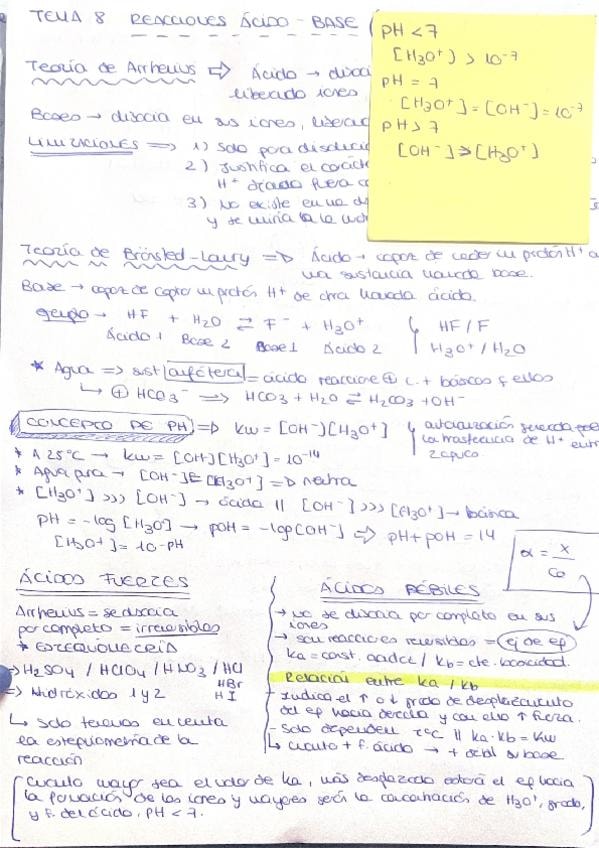 TEMA 8 REACCIONES ÁCIDO-BASE (
pH < 7
[H3O+] > 10-7
pH = 7
[H3O+] = [OH-] = 10-7
pH > 7
[OH-] > [H3O+]
Teoría de Arrhenius ⇨ Ácido → disoci
liberado iones
Bases → disocia en sus iones, liberad
LIMITACIONES => 1) Solo para disoluci
2) Justifica el caráct
H+
3) No existe en una di
y se
Teoría de Brönsted-Lowry => Ácido → capaz de ceder un protón H+ a
una sustancia llamada base.
Base → capaz de captar un protón H+ de otra llamada ácido.
ejemplo → HF + H2O ⇄ F- + H3O+ HF/F
Ácido 1 Base 2 Base 1 Ácido 2 H3O+/H2O
* Agua => sust anfótera = ácido reaccione ⊕ c. + básicos y ellos
↳ ⊕ HCO3- => HCO3 + H2O ⇄ H2CO3 + OH-
CONCEPTO DE PH => kw = [OH-][H3O+] autoionización generada por
la trasferencia de H+ entre
* A 25°C → kw = [OH-][H3O+] = 10-14
* Agua pura → [OH-] = [H3O+] => neutra
* [H3O+] >>> [OH-] → ácida || [OH-] >>> [H3O+] → básica
pH = -log [H3O+] → pOH = -log [OH-] => pH + pOH = 14
[H3O+] = 10-pH
α = x/Co
ÁCIDOS FUERTES
Arrhenius = se disocia
por completo = irreversibles
* ESTEQUIOMETRÍA
=> H2SO4 / HClO4 / HNO3 / HCl
HBr
HI
=> Hidróxidos 1 y 2
↳ solo tenemos en cuenta
la estequiometría de la
reacción
ÁCIDOS DÉBILES
→ no se disocia por completo en sus
iones
→ son reacciones reversibles = ej de eq
ka = const. acidez / kb = cte. basicidad.
Relación entre ka / kb
- Indica el ↑ o ↓ grado de desplazamiento
del eq hacia derecha y con ello ↑ fuerza.
- Solo dependen TªC || ka · kb = Kw
↳ cuanto + f. ácido → + débil su base
Cuanto mayor sea el valor de ka, más desplazado estará el eq hacia
la formación de los iones y mayores serán la concentración de H3O+, grado,
y f. del ácido, pH < 7.